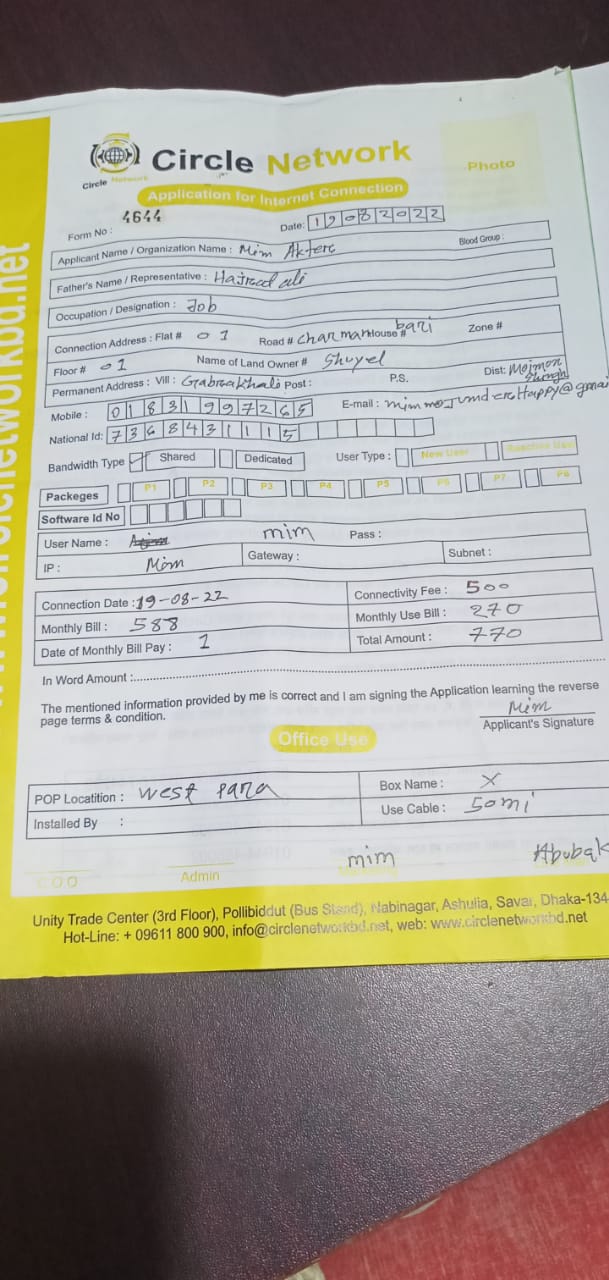 Circle Network
Circle Network
Application for Internet Connection
Photo
Form No : 4644
Date: 19082022
Applicant Name / Organization Name : Mim Akter
Blood Group :
Father's Name / Representative : ali
Occupation / Designation : Job
Connection Address : Flat # 01 Road # charman House # bari Zone #
Floor # 01 Name of Land Owner # Shuyel
Permanent Address : Vill : Post : P.S. Dist:
Mobile : 01831997265 E-mail :
National Id: 7368431115
Bandwidth Type Shared Dedicated User Type : New User Reactive User
Packeges P1 P2 P3 P4 P5 P6 P7 P8
Software Id No
User Name : mim Pass :
Mim
IP : Gateway : Subnet :
Connection Date : 19-08-22 Connectivity Fee : 500
Monthly Bill : 588 Monthly Use Bill : 270
Date of Monthly Bill Pay : 1 Total Amount : 770
In Word Amount :
The mentioned information provided by me is correct and I am signing the Application learning the reverse
page terms & condition.
Mim
Applicant's Signature
Office Use
POP Locatition : West para Box Name : X
Installed By : Use Cable : 50mi
mim Abubak
C O O Admin
Unity Trade Center (3rd Floor), Pollibiddut (Bus Stand), Nabinagar, Ashulia, Savar, Dhaka-134
Hot-Line: + 09611 800 900, info@circlenetworkbd.net, web: www.circlenetworkbd.net